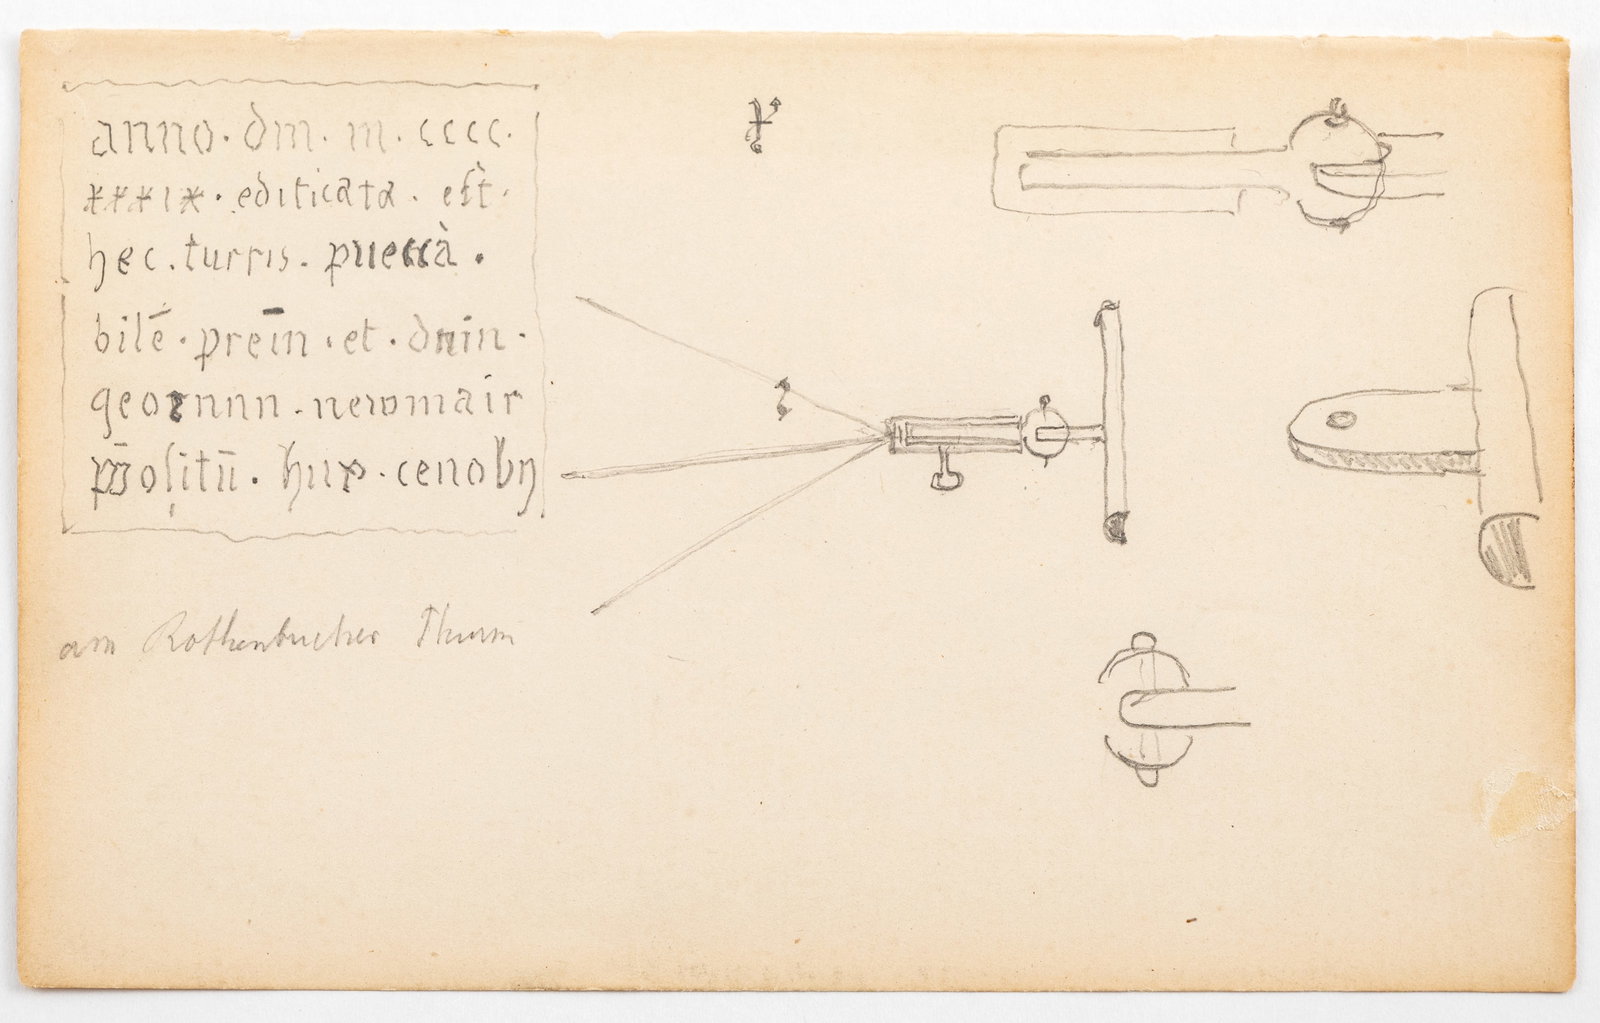 anno · dm · m · cccc ·
xxxix · edificata · est ·
hec . turris . p
bilē · prēin · et · dnin ·
georinnn · newmair
oſitū · huˀ · cenoby
am Rothenbucher Thurm